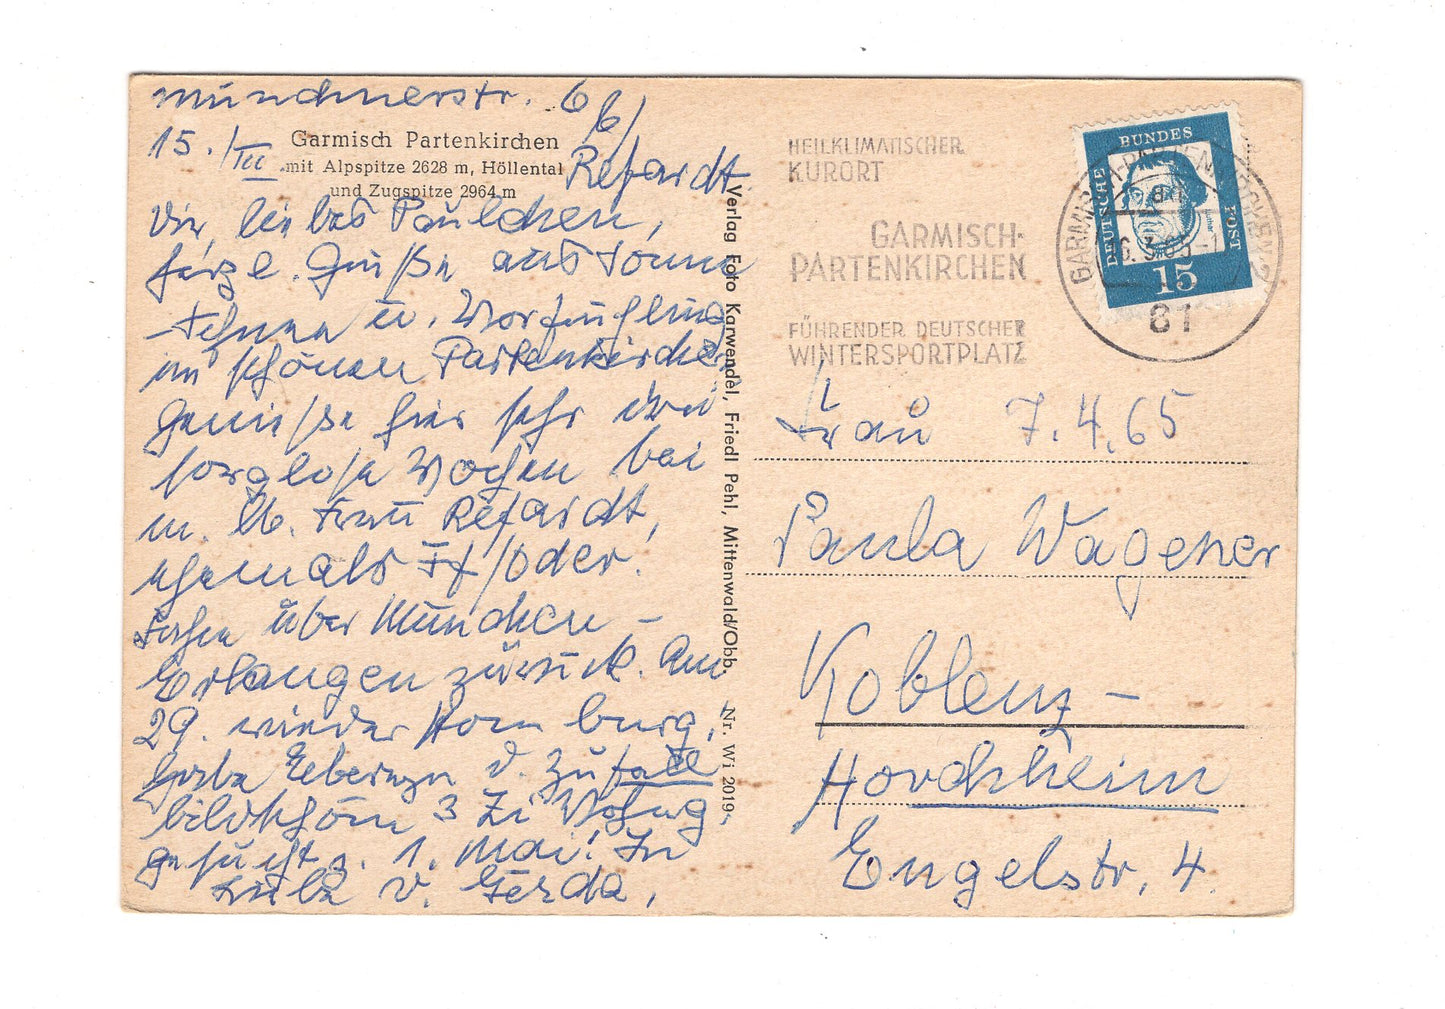 Münchnerstr. 6
15./III
b/
Refardt
Garmisch Partenkirchen
mit Alpspitze 2628 m, Höllental
und Zugspitze 2964 m
Dir, liebes Paulchen,
herzl. Grüße aus Sonne
Schnee u. Vorfrühling
im schönen Partenkirchen
Genieße hier sehr drei
sorglose Wochen bei
m. lb. Frau Refardt,
ehemals
Fahre über München –
Erlangen zurück. Am
29. wieder Homburg,
habe d. Zufall
bildschön 3 Zi Wohng
gesucht z. 1. Mai! In
Liebe D. Gerda,
Verlag Foto Karwendel, Friedl Pehl, Mittenwald/Obb. Nr. Wi 2019
HEILKLIMATISCHER
KURORT
GARMISCH-
PARTENKIRCHEN
FÜHRENDER DEUTSCHER
WINTERSPORTPLATZ
DEUTSCHE BUNDESPOST
15
GARMISCH-PARTENKIRCHEN 2
16.3.65-1
81
Frau 7.4.65
Paula Wagener
Koblenz –
Horchheim
Engelstr. 4